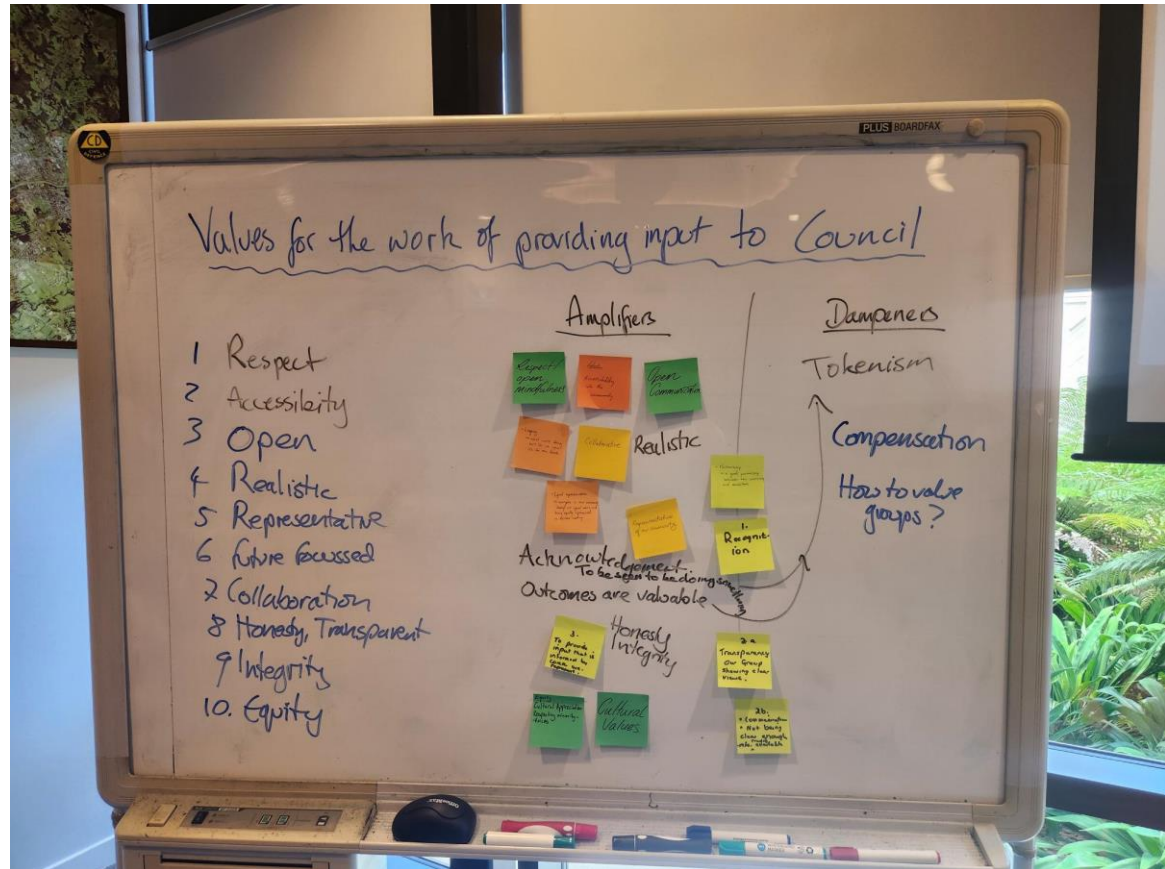 CD
CIVIL DEFENCE
PLUS BOARDFAX
Values for the work of providing input to Council
1 Respect
2 Accessibity
3 Open
4 Realistic
5 Representative
6 future focussed
7 Collaboration
8 Honesty, Transparent
9 Integrity
10. Equity
Amplifiers
Respect/
open
mindfulness
Open
Communication
Collaborative
Realistic
Representation
of our community
1.
Recognit-
ion
Acknowledgement
To be seen to be doing something
Outcomes are valuable
3.
To provide
input that is
Honesty
Integrity
2a
Transparency
Our Group
Showing clear
views.
Cultural Appreciation
Cultural
Values
2b.
• Communication
• Not being
clear enough
Dampeners
Tokenism
Compensation
How to value
groups?
OfficeMax